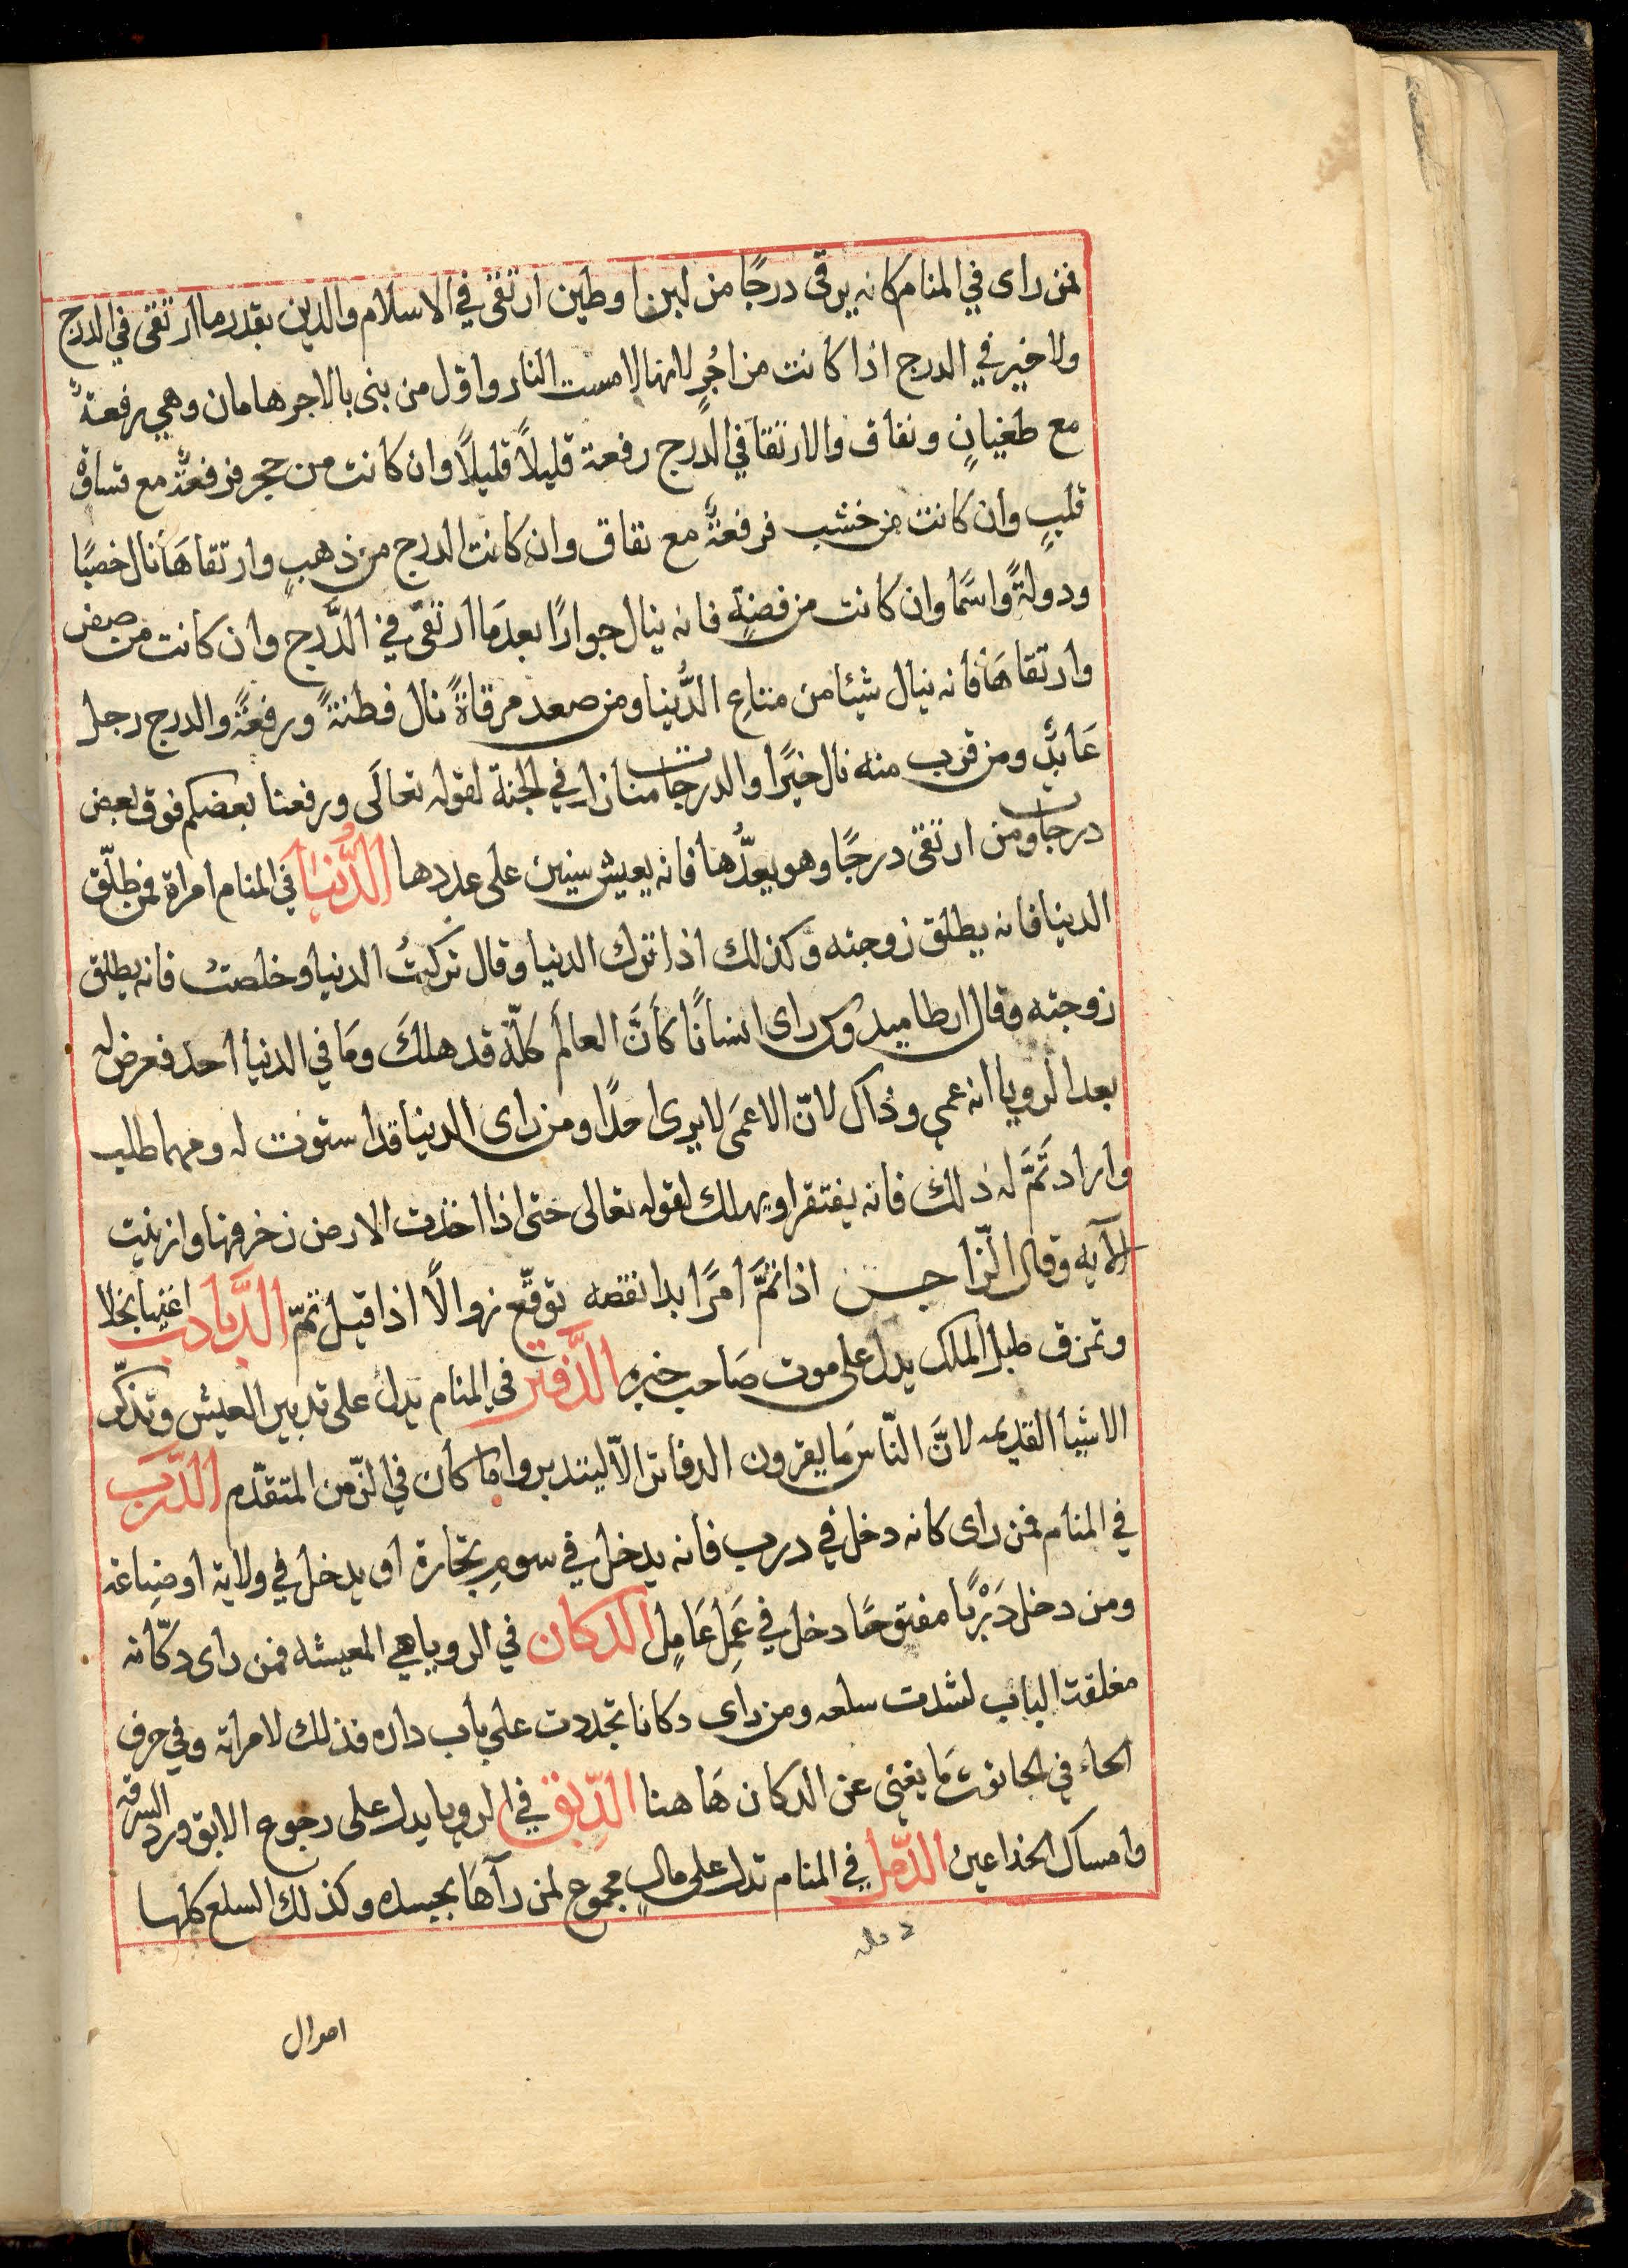 فمن راى في المنام كانه يرقى درجًا من لبن او طين ارتقى في الاسلام والدين بقدر ما ارتقى في الدرج
ولا خير في الدرج اذا كانت من اجُرٍ لانها لامست النار واوّل من بنى بالاجر هامان وهي رفعةٌ
مع طغيانٍ ونفاق والارتقا في الدرج رفعة قليلاً قليلاً وان كانت من حجر فرفعةٌ مع قساوة
قلبٍ وان كانت من خشب فرفعةٌ مع نفاق وان كانت الدرج من ذهبٍ وارتقاهَا نال خصبًا
ودولةً واسمًا وان كانت من فضةٍ فانه ينال جوارًا بعدمَا ارتقى في الدَّرج وان كانت من صفر
وارتقاهَا فانه ينال شيئا من متاعِ الدُّنيا ومن صعد مرقاةً نال فطنةً ورفعةً والدرج رجل
عَابدٌ ومن قرب منه نال خيرًا والدرجات منازل في الجنة لقوله تعالَى ورفعنا بعضكم فوق بعض
درجات ومن ارتقى درجًا وهو يعدُّها فانه يعيش سنين على عددها الدُّنيا في المنام امراة فمن طلّق
الدنيا فانه يطلق زوجته وكذلك اذا ترك الدنيا وقال تركتُ الدنيا وخلصت فانه يطلق
زوجته وقال ارطاميدوس راى انسانًا كأنَّ العالَم كلّه قد هلكَ ومَا في الدنيا احد فعرض له
بعد الرويا انه عمي وذاك لانّ الاعمَى لا يرى احدًا ومن راى الدنيا قد استوت له ومهما طلب
واراد تَمَّ له ذلك فانه يفتقر او يهلك لقوله تعالى حتى اذا اخذت الارض زخرفها وازينت
الآيه وقال الرّاجس اذا تمَّ امرًا بدا نقصه توقّع زوالًا اذا قيل تمّ الدَّبادب اغنيا بخلا
وتمزق طبل الملك يدل على موت صَاحب خبره الدَّفتر في المنام يدل على تدبير العيش وتذكّر
الاشيا القديمه لانَّ النّاس مَا يقرون الدفاتر الّا ليتدبروا ما كان في الزّمن المتقدّم الدَّرب
في المنام فمن راى كانه دخل في درب فانه يدخل في سومِ تجارة او يدخل في ولاية او ضِياعة
ومن دخل دَرْبًا مفتوحًا دخل في عَمِلِ عَامِلٍ الدكان في الرويا هي المعيشه فمن راى دكّانه
مغلقة الباب لشدت سلعه ومن راى دكانا تجددت على باب داره فذلك لامراته وفي حرف
الحاء في الحانوت مَا يغني عن الدكان هَاهنا الدِّبق في الرويا يدل على رجوع الابق ورد السرقه
وامساك الخداعين الدّمل في المنام تدل على مالٍ مجموع لمن رآهَا بجسده وكذلك السلع كلها
اموال